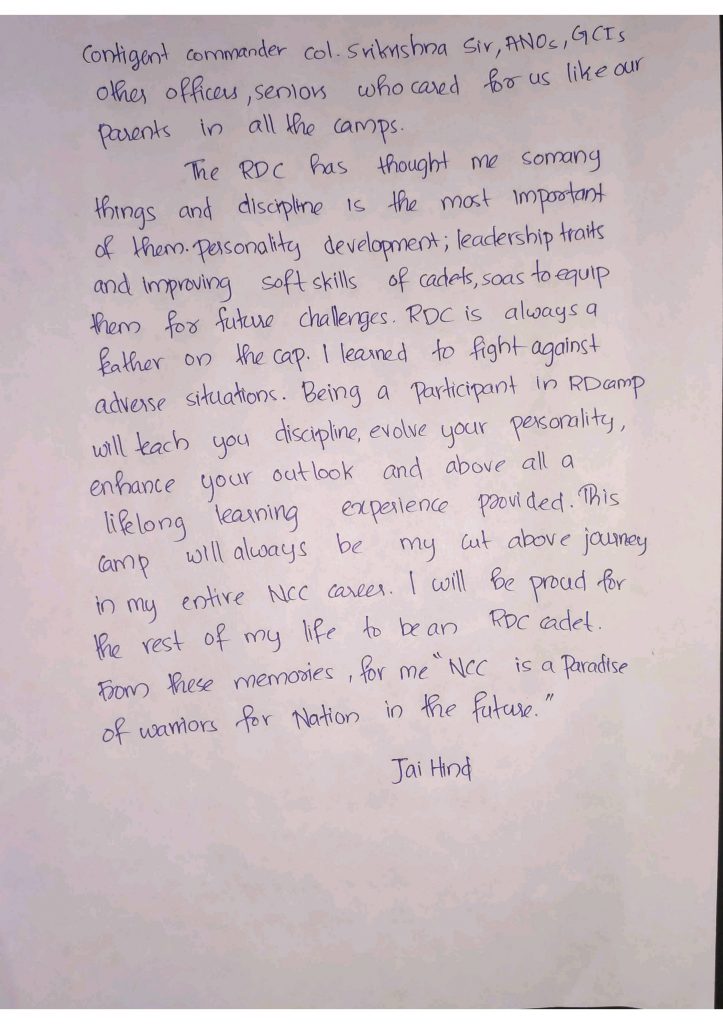 Contigent commander col. Srikrishna Sir, ANOs, GCIs
other officers, seniors who cared for us like our
parents in all the camps.
The RDC has thought me somany
things and discipline is the most important
of them. personality development; leadership traits
and improving soft skills of cadets, soas to equip
them for future challenges. RDC is always a
feather on the cap. I learned to fight against
adverse situations. Being a participant in RDcamp
will teach you discipline, evolve your personality,
enhance your outlook and above all a
lifelong learning experience provided. This
camp will always be my cut above journey
in my entire NCC career. I will be proud for
the rest of my life to be an RDC cadet.
From these memories, for me "NCC is a Paradise
of warriors for Nation in the future."
Jai Hind